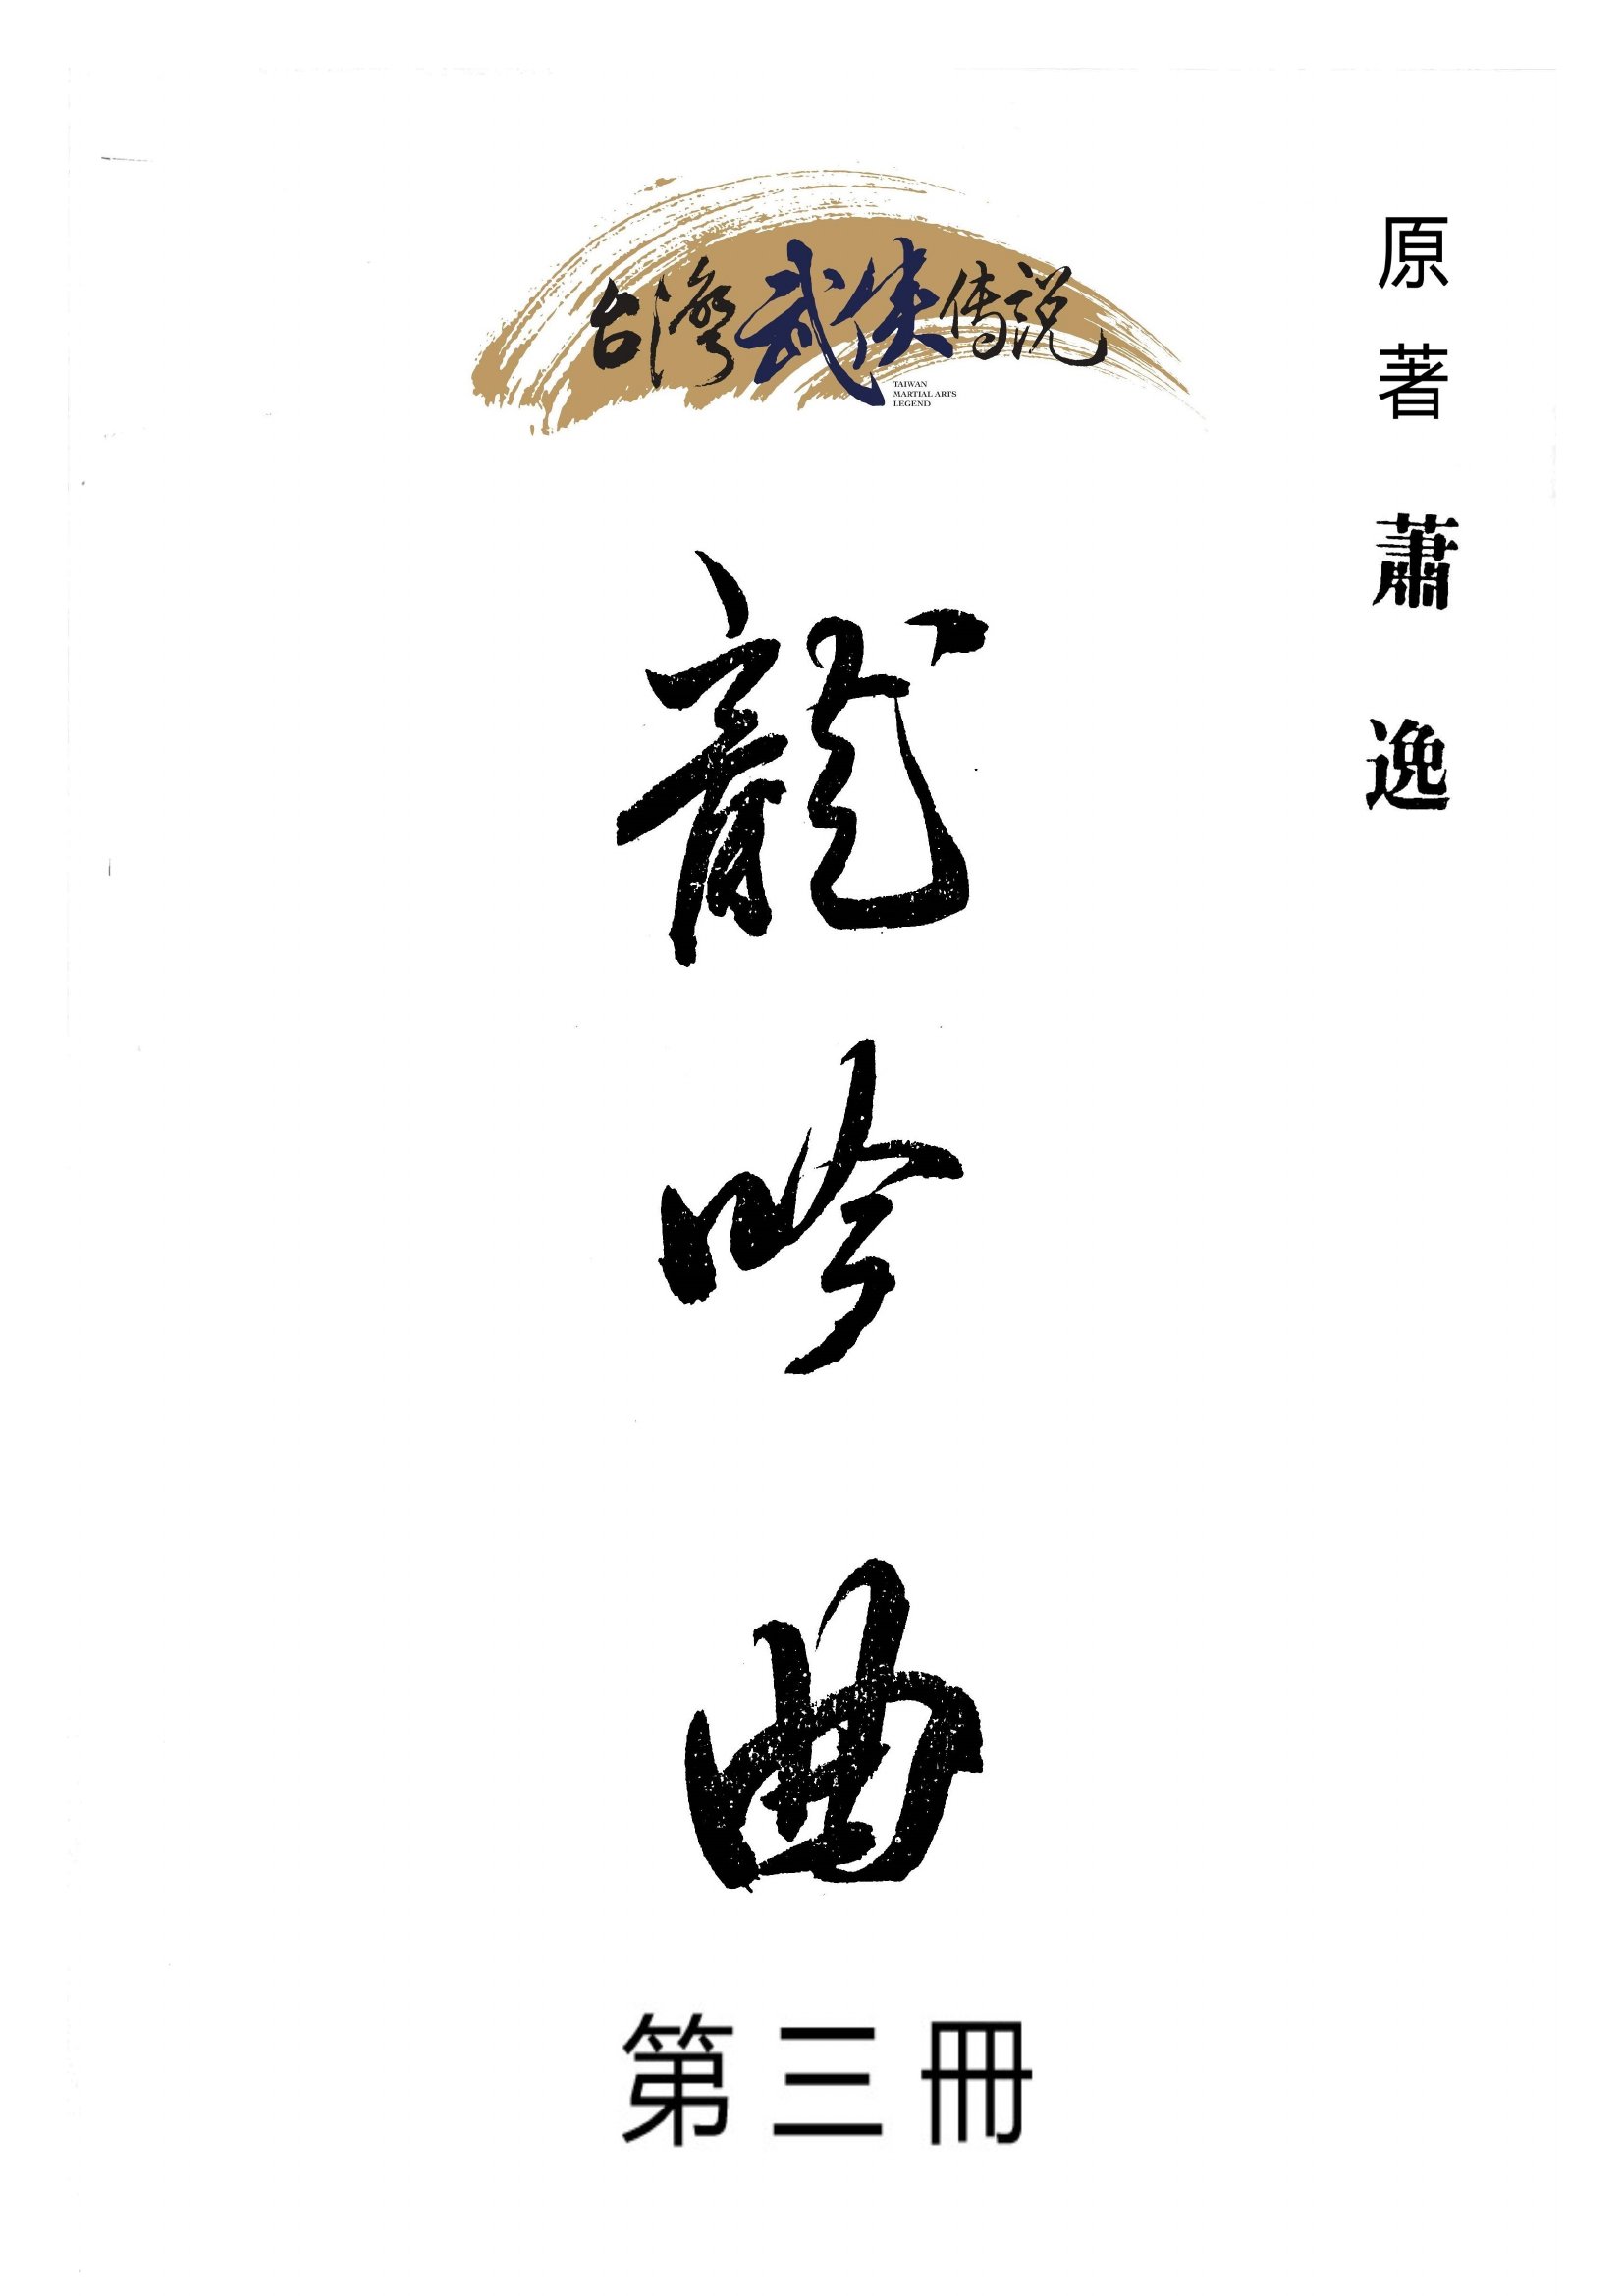 台灣武俠传说
TAIWAN
MARTIAL ARTS
LEGEND
原著 蕭逸
龍吟曲
第三冊